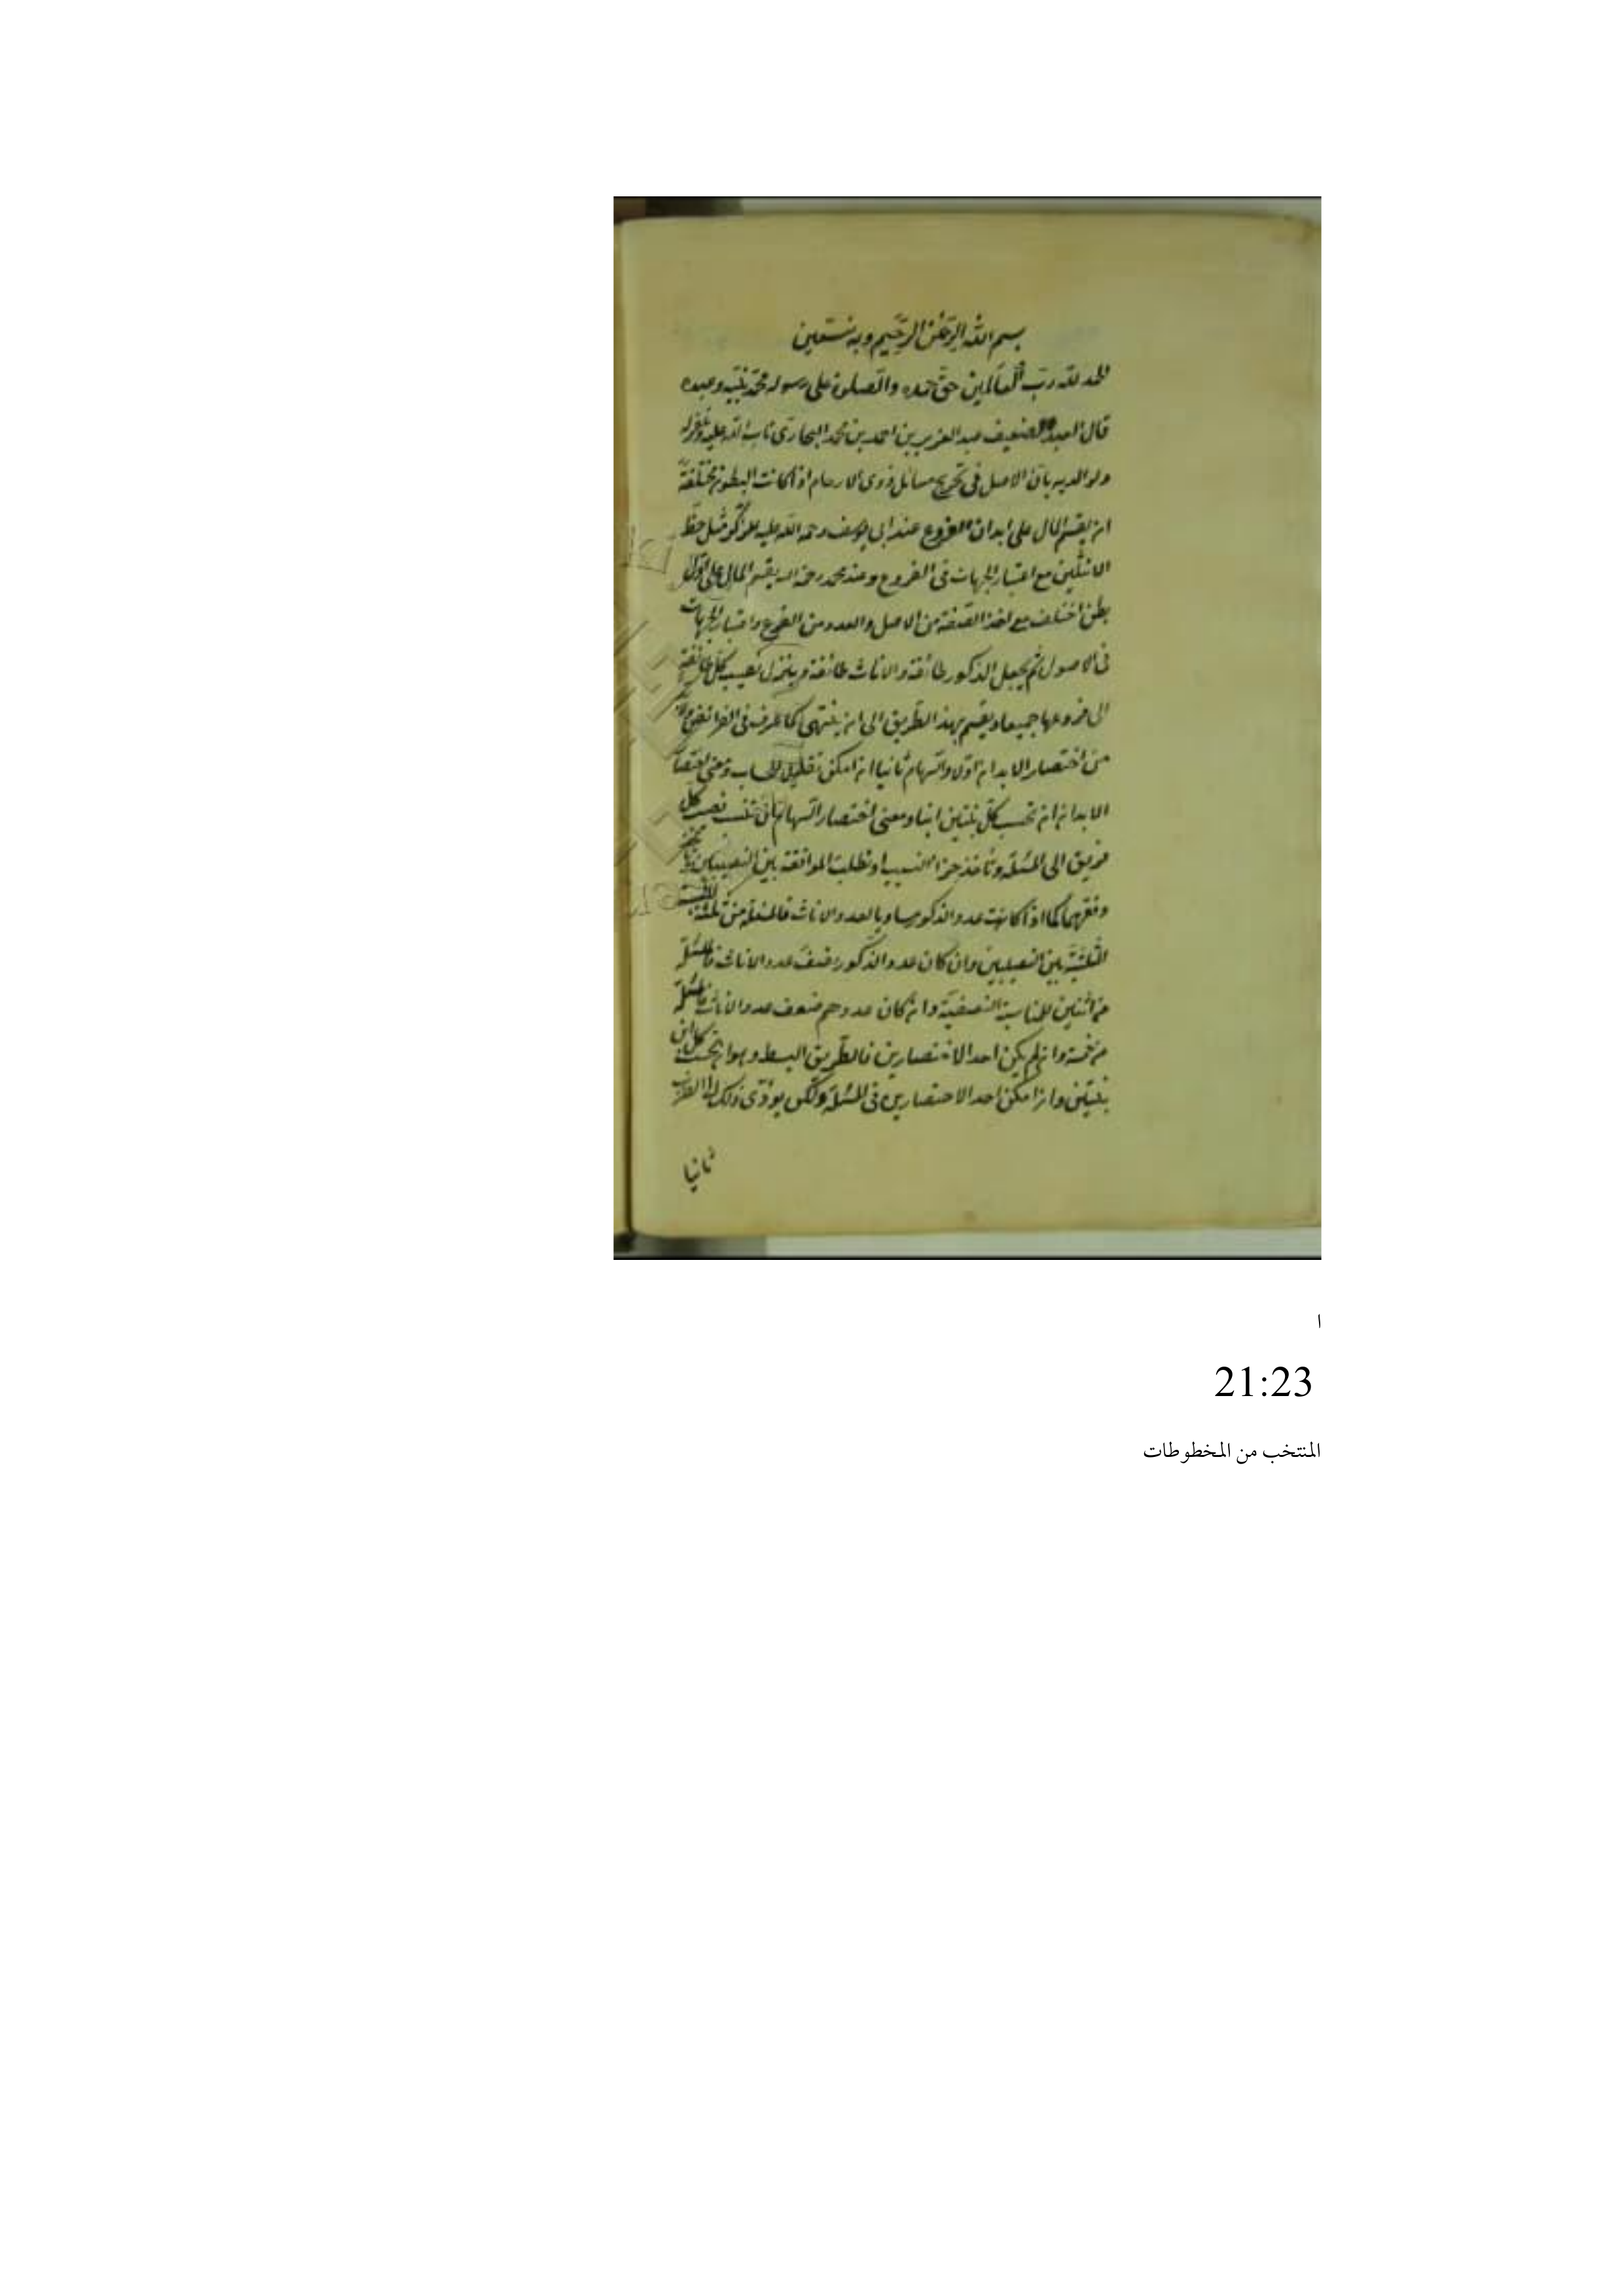 بسم الله الرحمن الرحيم وبه نستعين
الحمد لله رب العالمين حق حمده والصلوة على رسوله محمد نبيه وعبده
قال العبد الضعيف عبد العزيز بن احمد بن محمد البخارى تاب الله عليه وغفر له
ولوالديه بان الاصل فى تخريج مسائل ذوى الارحام اذا كانت البطون مختلفة
ان يقسم المال على ابدان الفروع عند ابى يوسف رحمة الله عليه للذكر مثل حظ
الانثيين مع اعتبار الجهات فى الفروع وعند محمد رحمه الله يقسم المال على اول
بطن اختلف مع اخذ الصفة من الاصل والعدد من الفروع واعتبار الجهات
فى الاصول ثم يجعل الذكور طائفة والاناث طائفة وينزل نصيب كل طائفة
الى فروعها جميعا ويقسم بهذا الطريق الى ان ينتهى كما عرف فى الفرائض ولابد
من اختصار الابدان اولا والسهام ثانيا ان امكن تقليل للحساب ومعنى اختصار
الابدان ان تحسب كل بنتين ابنا ومعنى اختصار السهام ان تنسب نصيب كل
فريق الى المسئلة وتأخذ جزأ النسيب او تطلب الموافقة بين النصيبين
وفقهما كما اذا كانت عدد الذكور مساويا لعدد الاناث فالمسئلة من ثلثة
الثلثية بين النصيبين وان كان عدد الذكور نصف عدد الاناث فالمسئلة
من اثنين للمناسبة النصفية وان كان عددهم ضعف عدد الاناث فالمسئلة
من خمسة وان لم يكن احد الاختصارين فالطريق البسط وهو ان تحسب كل ابن
بنتين وان امكن احد الاختصارين فى المسئلة ولكن يؤدى ذلك الى الضرب
ثانيا
ا
21:23
المنتخب من المخطوطات